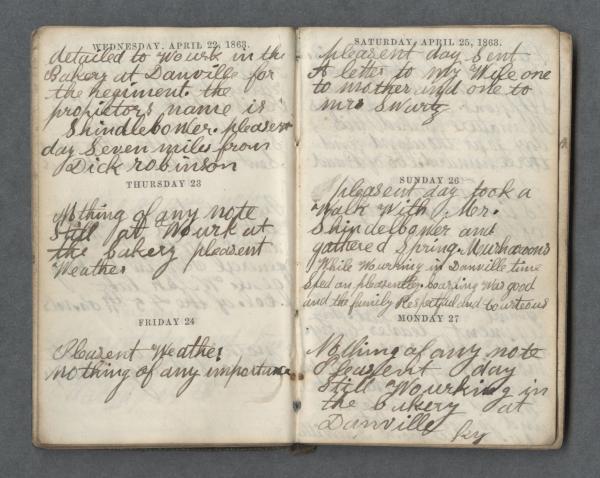 WEDNESDAY, APRIL 22, 1863.
detailed to Wourk in the
Bakery at Danville for
the regiment. the
propietors name is
Shindlebower. pleasent
day Seven miles from
Dick robinson
THURSDAY 23
Nothing of any note
Still at Wourk at
the bakery pleasent
Weather
FRIDAY 24
Pleasent Weather
nothing of any importance
SATURDAY, APRIL 25, 1863.
pleasent day Sent
A letter to my Wife one
to mother and one to
mrs Swartz
SUNDAY 26
pleasent day took a
Walk With Mr.
Shindelbower and
gathered Spring
While Wourking in Danville time
sped on pleasently. boarding was good
and the family Respectful and Courteous
MONDAY 27
Nothing of any note
pleasent day
Still Wourking in
the bakery at
Danville
Ky